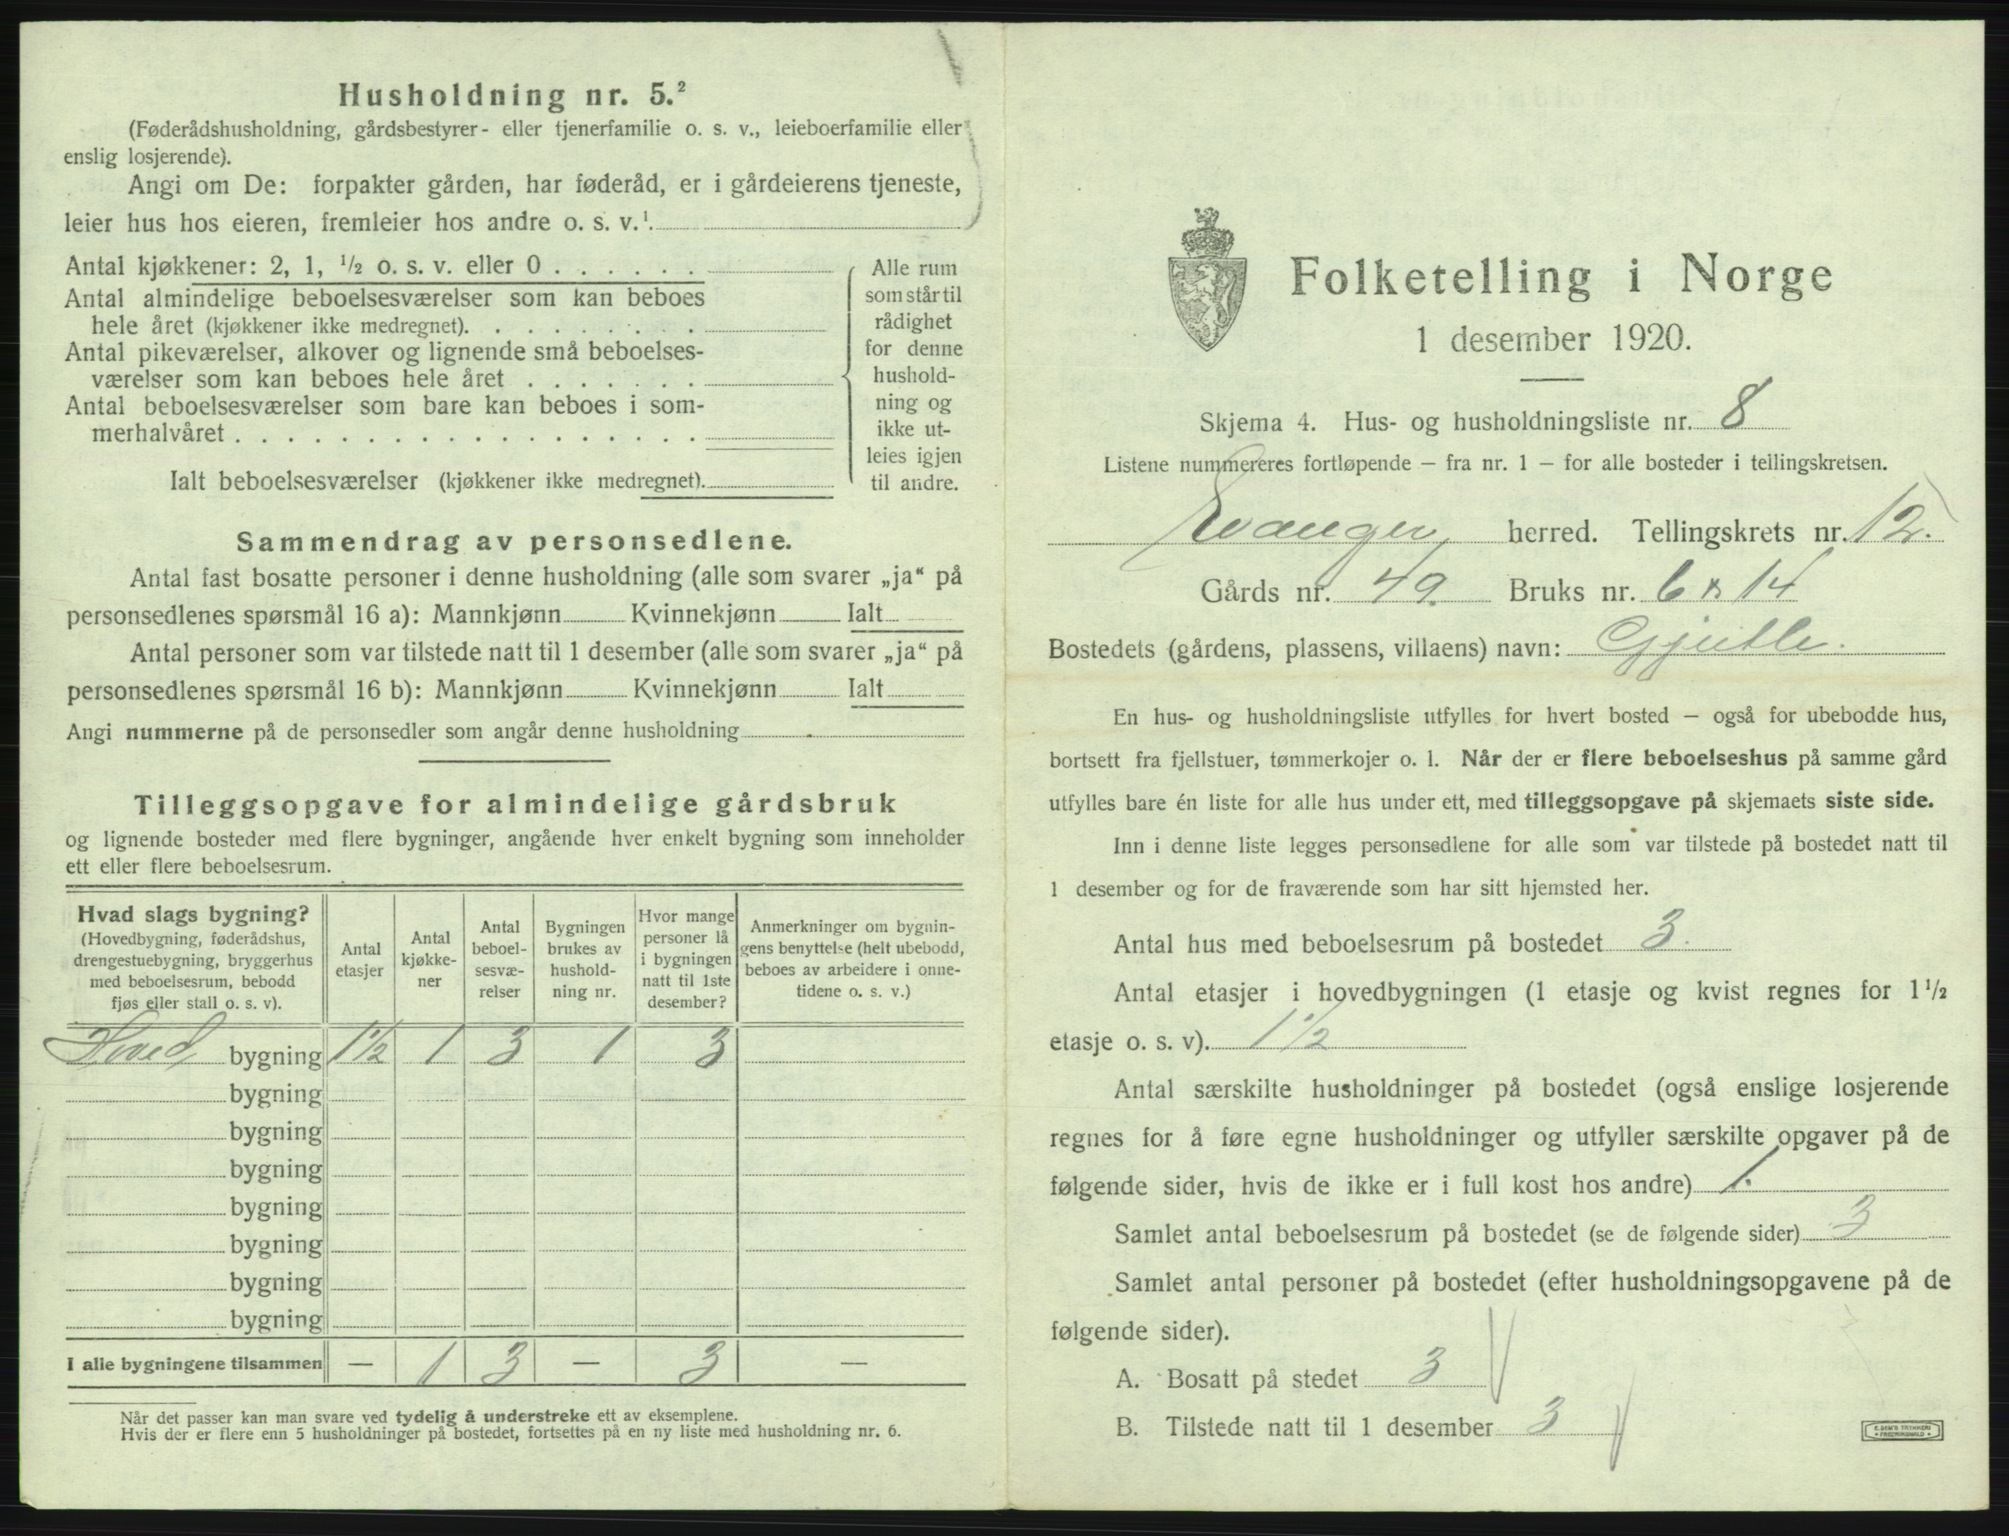 Husholdning nr. 5.²
(Føderådshusholdning, gårdsbestyrer- eller tjenerfamilie o. s. v., leieboerfamilie eller
enslig losjerende).
Angi om De: forpakter gården, har føderåd, er i gårdeierens tjeneste,
leier hus hos eieren, fremleier hos andre o. s. v.¹
Antal kjøkkener: 2, 1, ½ o. s. v. eller 0 . . . . . .
Antal almindelige beboelsesværelser som kan beboes
hele året (kjøkkener ikke medregnet). . . . . . . . .
Antal pikeværelser, alkover og lignende små beboelses-
værelser som kan beboes hele året . . . . . . .
Antal beboelsesværelser som bare kan beboes i som-
merhalvåret . . . . . . . . . . . . . . . . . .
Ialt beboelsesværelser (kjøkkener ikke medregnet).
Alle rum
som står til
rådighet
for denne
hushold-
ning og
ikke ut-
leies igjen
til andre.
Sammendrag av personsedlene.
Antal fast bosatte personer i denne husholdning (alle som svarer „ja" på
personsedlenes spørsmål 16 a): Mannkjønn Kvinnekjønn Ialt
Antal personer som var tilstede natt til 1 desember (alle som svarer „ja" på
personsedlenes spørsmål 16 b): Mannkjønn Kvinnekjønn Ialt
Angi nummerne på de personsedler som angår denne husholdning
Tilleggsopgave for almindelige gårdsbruk
og lignende bosteder med flere bygninger, angående hver enkelt bygning som inneholder
ett eller flere beboelsesrum.
Hvad slags bygning?
(Hovedbygning, føderådshus,
drengestuebygning, bryggerhus
med beboelsesrum, bebodd
fjøs eller stall o. s. v).
Antal
etasjer
Antal
kjøkke-
ner
Antal
beboel-
sesvæ-
relser
Bygningen
brukes av
hushold-
ning nr.
Hvor mange
personer lå
i bygningen
natt til 1ste
desember?
Anmerkninger om bygnin-
gens benyttelse (helt ubebodd,
beboes av arbeidere i onne-
tidene o. s. v.)
Hoved bygning 1½ 1 3 1 3
bygning
bygning
bygning
bygning
bygning
bygning
bygning
I alle bygningene tilsammen — 1 3 — 3 —
Når det passer kan man svare ved tydelig å understreke ett av eksemplene.
Hvis der er flere enn 5 husholdninger på bostedet, fortsettes på en ny liste med husholdning nr. 6.
Folketelling i Norge
1 desember 1920.
Skjema 4. Hus- og husholdningsliste nr. 8
Listene nummereres fortløpende – fra nr. 1 – for alle bosteder i tellingskretsen.
Evanger herred. Tellingskrets nr. 12.
Gårds nr. 49. Bruks nr. 6 & 14
Bostedets (gårdens, plassens, villaens) navn: Gjutle.
En hus- og husholdningsliste utfylles for hvert bosted – også for ubebodde hus,
bortsett fra fjellstuer, tømmerkojer o. l. Når der er flere beboelseshus på samme gård
utfylles bare én liste for alle hus under ett, med tilleggsopgave på skjemaets siste side.
Inn i denne liste legges personsedlene for alle som var tilstede på bostedet natt til
1 desember og for de fraværende som har sitt hjemsted her.
Antal hus med beboelsesrum på bostedet 3.
Antal etasjer i hovedbygningen (1 etasje og kvist regnes for 1½
etasje o. s. v). 1½
Antal særskilte husholdninger på bostedet (også enslige losjerende
regnes for å føre egne husholdninger og utfyller særskilte opgaver på de
følgende sider, hvis de ikke er i full kost hos andre) 1.
Samlet antal beboelsesrum på bostedet (se de følgende sider) 3
Samlet antal personer på bostedet (efter husholdningsopgavene på de
følgende sider).
A. Bosatt på stedet 3
B. Tilstede natt til 1 desember 3
E. SEM'S TRYKKERI
FREDRIKSHALD